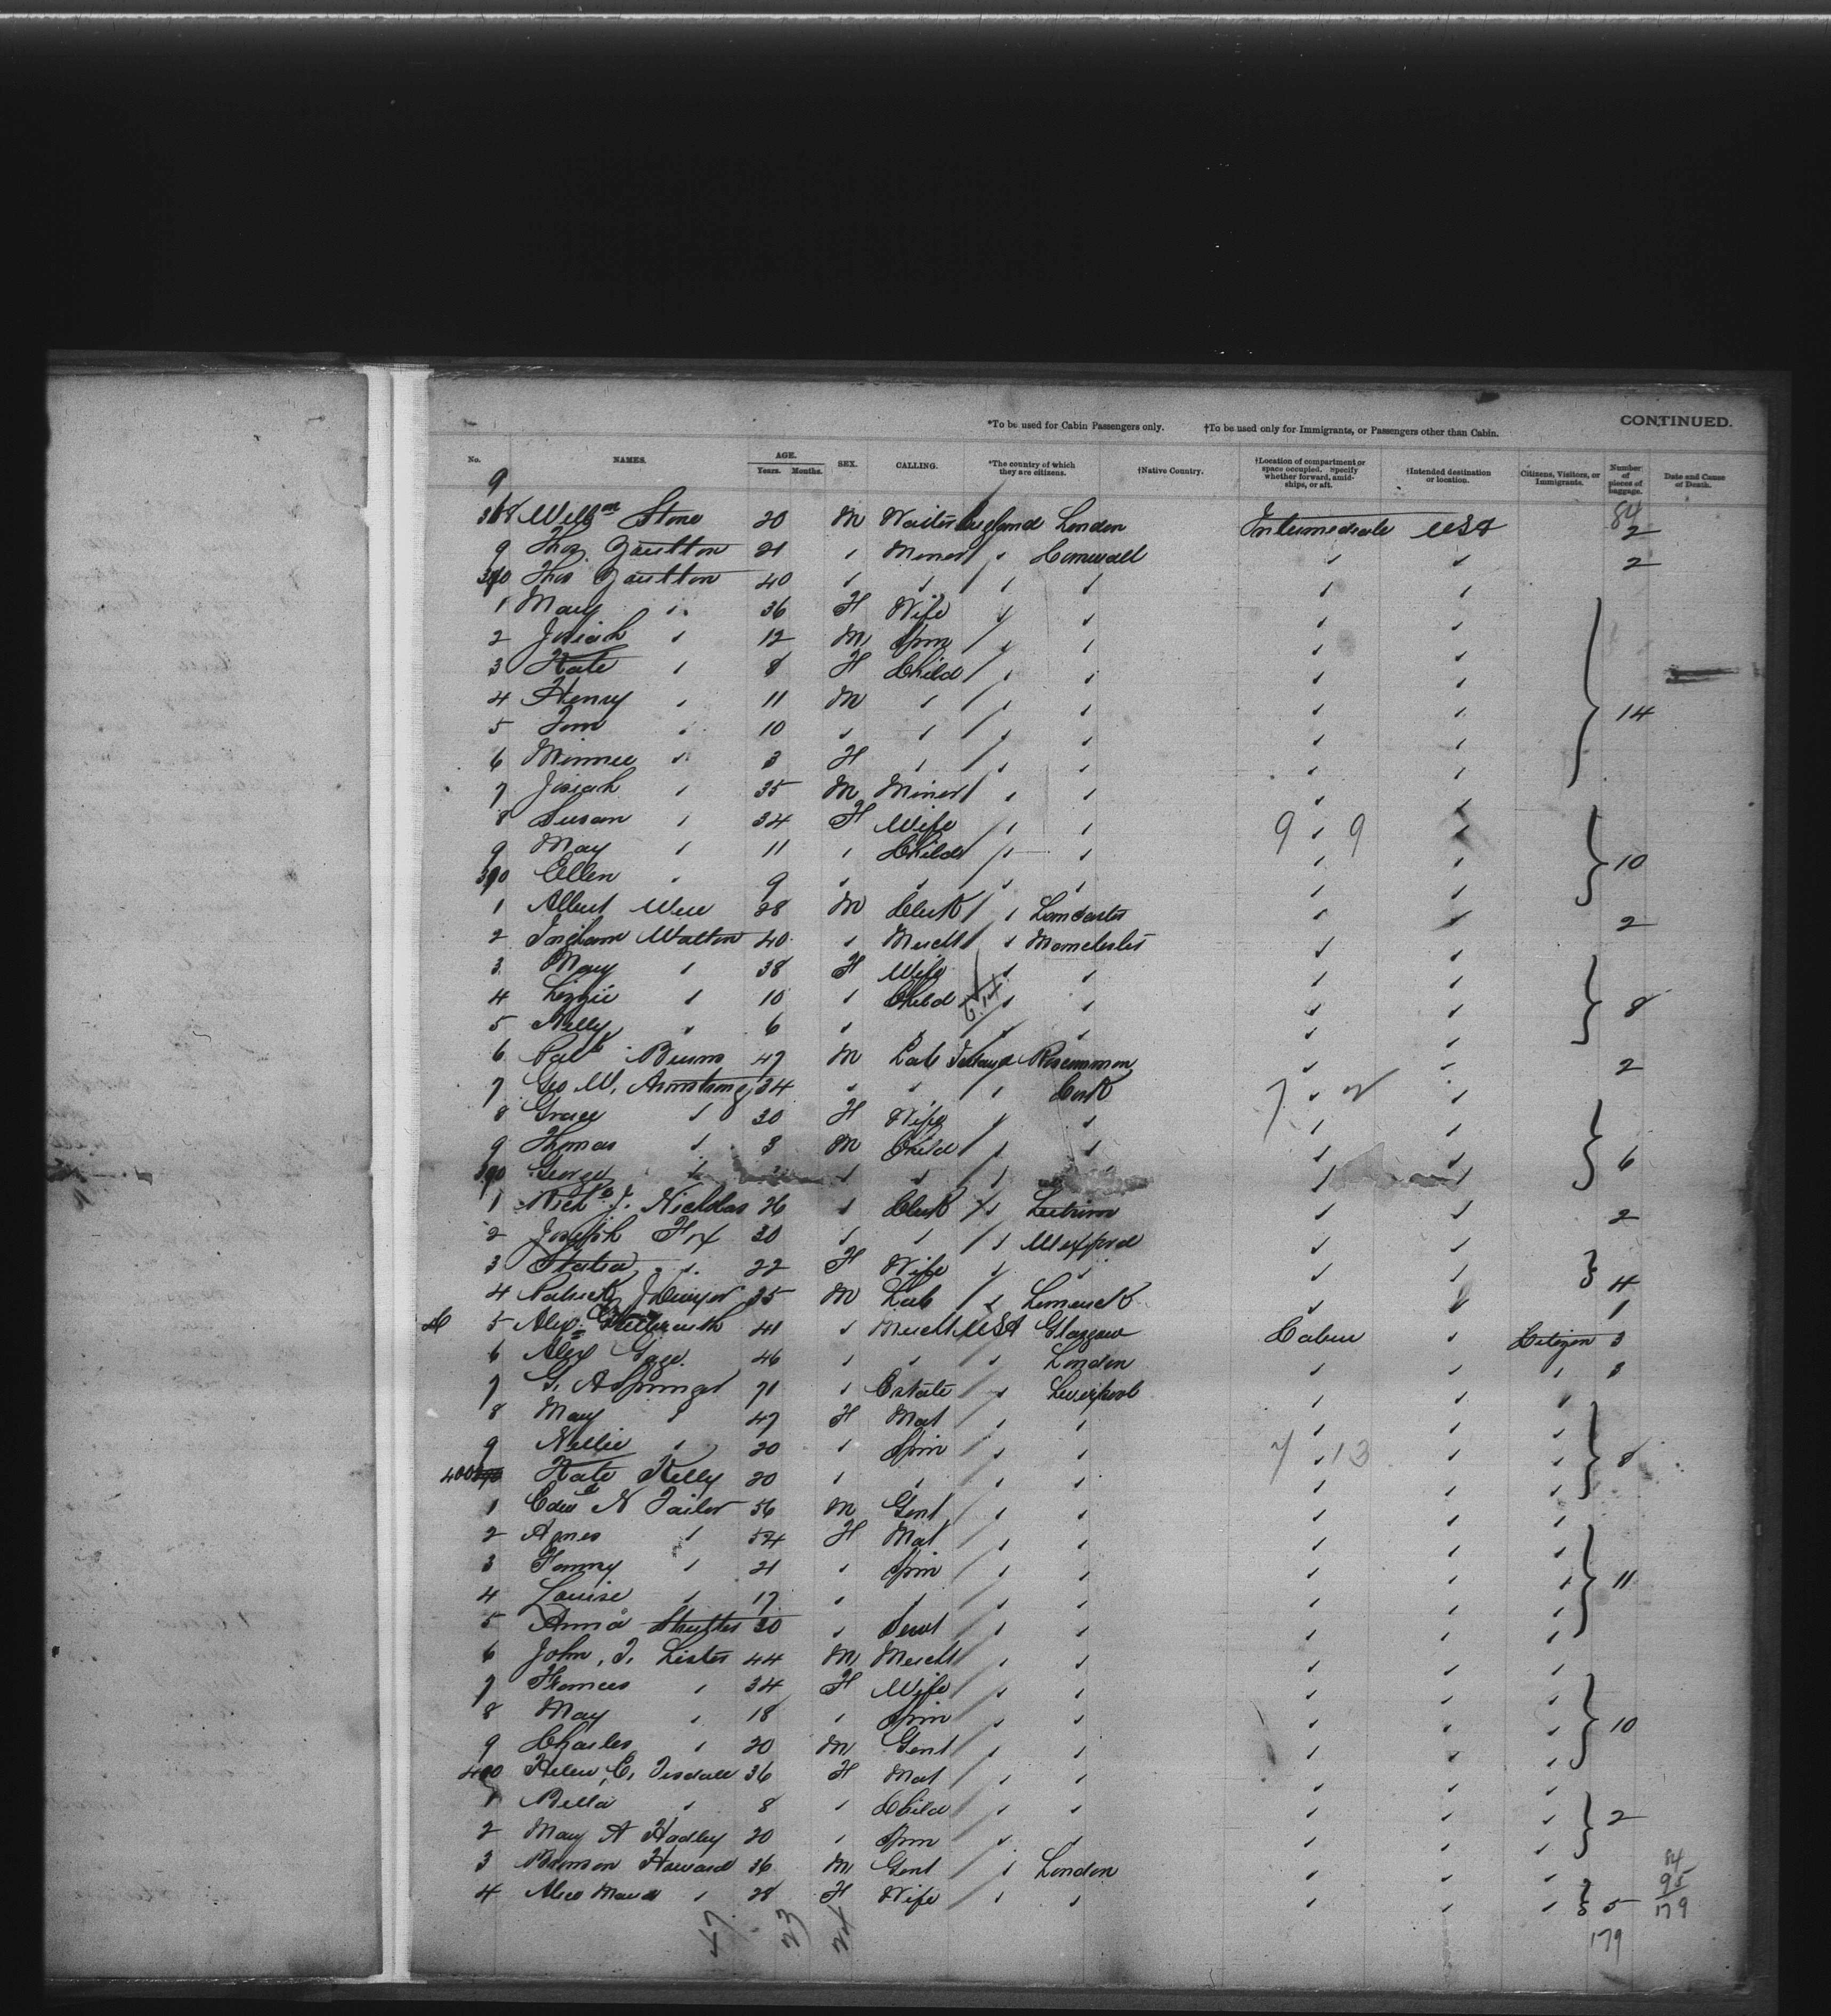 CONTINUED.
*To be used for Cabin Passengers only. †To be used only for Immigrants, or Passengers other than Cabin.
No. NAMES. AGE. Years. Months. SEX. CALLING. *The country of which they are citizens. †Native Country. †Location of compartment or space occupied. Specify whether forward, amidships, or aft. †Intended destination or location. Citizens, Visitors, or Immigrants. Number of pieces of baggage. Date and Cause of Death.
9 84
368 Willm Stone 20 M Waiter England London Intermediate USA 2
9 Thos 21 " Miner " Cornwall " " 2
370 Thos 40 " " " " " "
1 Mary " 36 F Wife " " " "
2 Josiah " 12 M Spin " " " "
3 Kate " 8 F Child " " " "
4 Henry " 11 M " " " " " 14
5 Tom " 10 " " " " " "
6 Minnie " 3 F " " " " "
7 Josiah " 35 M Miner " " " "
8 Susan " 34 F Wife " " 9 " 9 "
9 May " 11 " Child " " " " 10
390 Ellen " 9 " " " " " "
1 Albert 28 M Clerk " Lancaster " " 2
2 Ingham Walton 40 " Mercht " Manchester " "
3 Mary " 38 F Wife " " " "
4 Lizzie " 10 " Child " " " " 8
5 Nelly " 6 " " " " " "
6 Patk Burns 47 M Lab Ireland Roscommon " " 2
7 Geo W. Armstrong 34 " " " Cork 7 " 2 "
8 Grace " 30 F Wife " " " "
9 Thomas " 3 M Child " " " " 6
390 George " " " " " "
1 Richd J. Nicholas 26 " Clerk " Leitrim " " 2
2 Joseph Fox 30 " " " Wexford " "
3 Statia " 22 F Wife " " " " 4
4 Patrick 35 M Lab " Limerick " " 1
5 Alex 41 " Mercht USA Glasgow Cabin " Citizen 3
6 Alex 46 " " " London " " " 3
7 G. A Springer 71 " Estate " Liverpool " " "
8 Mary " 47 F Mat " " " " "
9 Nellie " 20 " Spin " " 7 " 13 " " 8
400 Kate Kelly 20 " " " " " " "
1 Edwd N Tailor 56 M Gent " " " " "
2 Agnes " 54 F Mat " " " " "
3 Fanny " 21 " Spin " " " " " 11
4 Louise " 17 " " " " " " "
5 Anna 30 " Servt " " " " "
6 John, T. Lister 44 M Mercht " " " " "
7 Frances " 34 F Wife " " " " "
8 May " 18 " Spin " " " " " 10
9 Charles " 20 M Gent " " " " "
400 Helen C. Tisdall 36 F Mat " " " " "
1 Bella " 8 " Child " " " " " 2
2 Mary A Hadley 20 " Spin " " " " "
3 Bronson Howard 36 M Gent " London " " "
4 Alice Maud " 28 F Wife " " " " " 5
84
95
179
47 23 24 179